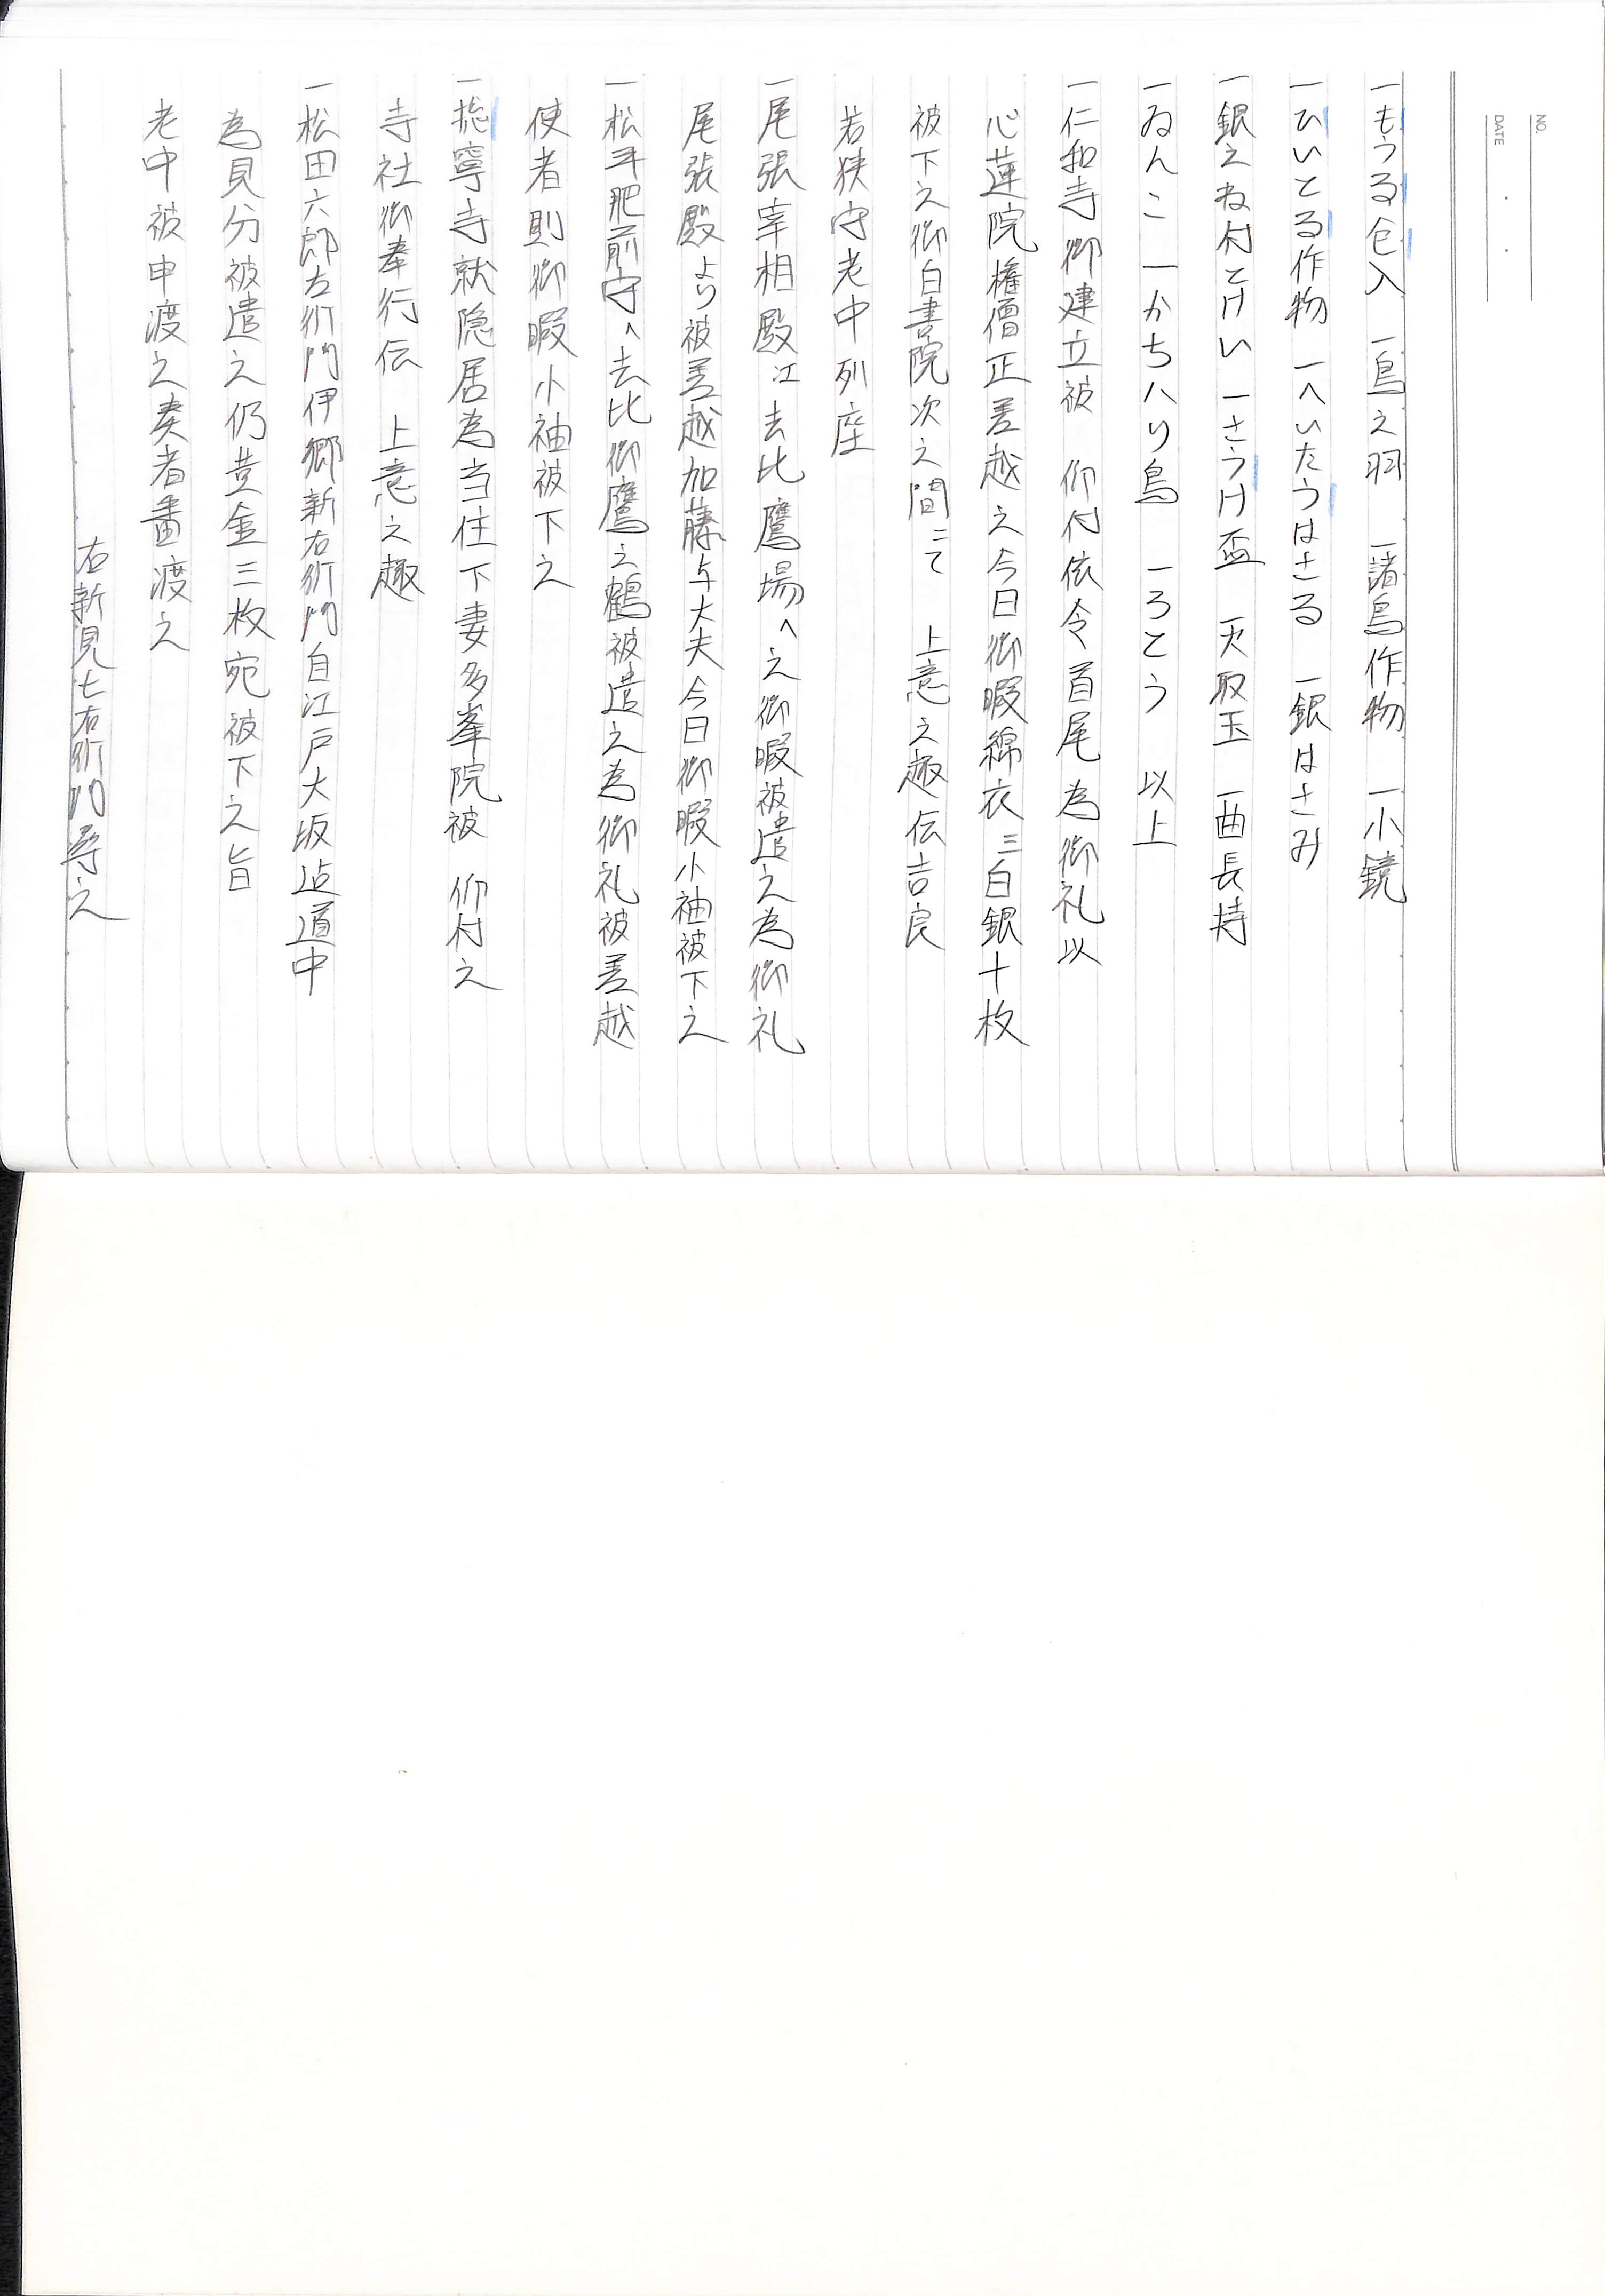 NO.
DATE
一もうる仓入 一鳥之羽 一諸鳥作物 一小鏡
一ひいとる作物 一へいたうはさる 一銀はさみ
一銀之ね付とけい 一さうけ盃 一火取玉 一酉長持
一ゐんこ 一かちハり鳥 一ろとう 以上
一仁和寺御建立被 仰付依令首尾為御礼以
心蓮院権僧正差越之今日御暇綿衣三白銀十枚
被下之御白書院次之間ニて 上意之趣伝吉良
若狭守老中列座
一尾張宰相殿江去比鷹場へ之御暇被遣之為御礼
尾張殿より被差越加藤与大夫今日御暇小袖被下之
一松平肥前守へ去比御鷹之鶴被遣之為御礼被差越
使者則御暇小袖被下之
一摠寧寺就隠居為当住下妻多峯院被 仰付之
寺社御奉行伝 上意之趣
一松田六郎左衛門伊郷新右衛門自江戸大坂迠道中
為見分被遣之仍黄金三枚宛被下之旨
老中被申渡之奏者番渡之
右新見七右衛門尋之